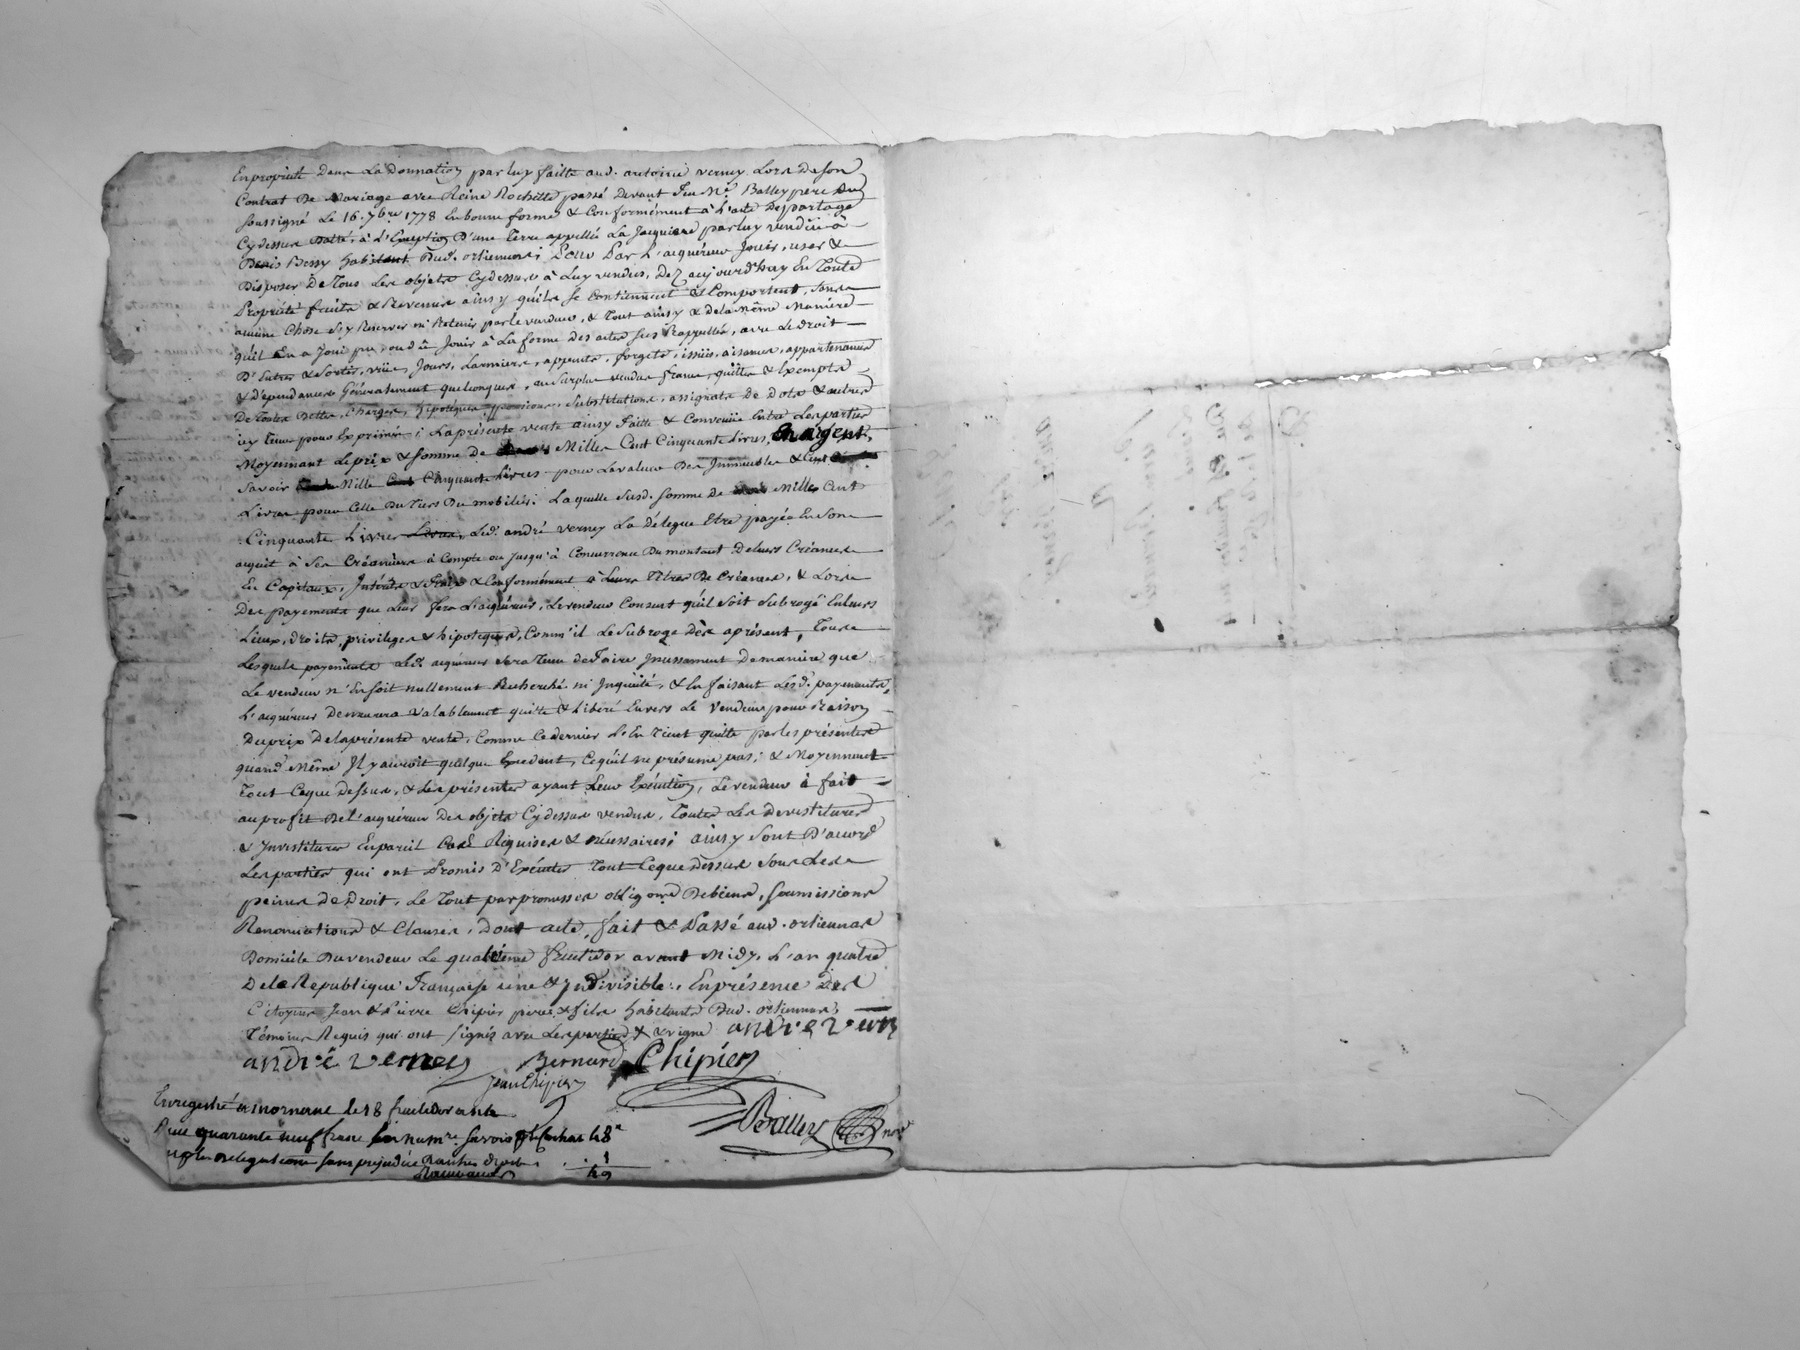 En propriété dans La Donnation par luy faitte aud. antoine verney Lors de son
Contrat De Mariage avec Reine Rochette passé Devant feu Me. Balley pere du
soussigné Le 16. 7bre 1778 En bonne forme & Conformément à L'acte De partage
Cydessus Datté, à L'Exeption D'une Terre appellée La Jaquiere par luy vendüe à
Denis Bessy habitant Dud. orliennas; Pour Par L'acquéreur Jouir, user &
Disposer De Tous Les objets Cydessus à Luy vendus, Dez aujourd'huy En Toute
Propriété fruits & Revenus ainsy quils se Contiennent & Comportent, sans
aucune Chose s'y Reserver ni Retenir par le vendeur, & Tout ainsy & de la même Maniere
quil En a Joui pu, ou dû Jouir à La forme des actes sus Rappellés, avec Le Droit
D'Entrer & Sortir, vües, Jours, Larmiers, appents, forgets, issües, aisances, appartenances
& Dépendances Généralement quelconques, au Surplus vendus francs, quittes & Exempts
De Toutes Dettes, Charges, hipotéques, pensions, Substitutions, assignats de Dots & autres
icy Tenus pour Exprimés; La présente vente ainsy faitte & Convenüe Entre Les parties
Moyennant Le prix & somme de Milles Cent Cinquante Livres, En argent,
Savoir Mille Cent Cinquante Livres pour La valeur Des Immeubles & Cent
Livres pour Celle Du Tiers Du mobilier. Laquelle susd. somme de Milles Cent
Cinquante Livres Led. andré verney La Délegue Etre payée En Son
acquit à Ses Créanciers à Compte ou Jusqu'à Concurrence Du montant De leurs Créances
En Capitaux, Intérêts & frais & Conformément à Leurs Titres De Créances, & Lors
Des payements que Leur fera L'acquéreur, Le vendeur Consent qu'il soit Subrogé En Leurs
Lieux, droits, privileges & hipoteques, Comm'il Le Subroge Dès àprésent, Tous
Lesquels payements Led. acquéreur Sera Tenu de faire Incessament De maniere que
Le vendeur n'En soit nullement Recherché ni Inquiété, & En faisant Lesd. payements,
L'acquéreur Demeurera valablement quitte & Libéré Envers Le vendeur pour Raison
Du prix De la présente vente, Comme Ce dernier L'En Tient quitte par les présentes
quand Même Il y auroit quelque Excedent, Ce qu'il ne présume pas; & Moyennant
Tout Ceque Dessus, & Les présentes ayant Leur Exécution, Le vendeur à fait
au profit De L'acquéreur Des objets Cydessus vendus, Toutes Les Devestitures
& Investitures En pareil Cas Réquises & nécessaires; ainsy Sont D'accord
Les parties qui ont Promis D'Exécuter Tout Ceque Dessus Sous Les
peines de Droit, Le Tout par promesses oblig.ons De biens, Soumissions
Renonciations & Clauses, dont acte, fait & Passé aud. orliennas
Domicile Du vendeur Le quatrième fructidor avant Midy, L'an quatre
De la Republique Française une & Indivisible. En présence Des
Citoyens Jean & Pierre Chipier pere & fils habitants Dud. orliennas,
Témoins Requis qui ont signés avec Les parties andré vern
andré verney Bernard Chipier
Jean Chipier
Enregistré à mornant le 18 fructidor an 4e
Reçu quarante neuf francs en num.re savoir 48
sans prejudice d'autres droits . . 1
49
Balley not.